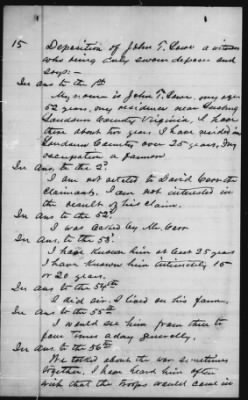 15 Deposition of John T. a witness
who being duly sworn deposes and
says:-
In Ans to the 1st
My name is John T. my age
52 years, my residence near
Loudoun County Virginia, I have
there about two years. I have resided in
Loudoun County over 25 years, my
occupation a farmer
In Ans. to the 2d
I am not related to David Carr the
Claimant. I am not interested in
the result of his claim.
In Ans to the 52d
I was called by Mr. Carr
In Ans. to the 53d
I have known him at least 25 years
I have known him intimately 15
or 20 years.
In Ans to the 54th
I did sir. I lived on his farm.
In Ans to the 55th
I would see him from three to
four times a day generally.
In Ans to the 56th
We talked about the war sometimes
together, I have heard him often
wish that the troops would come in